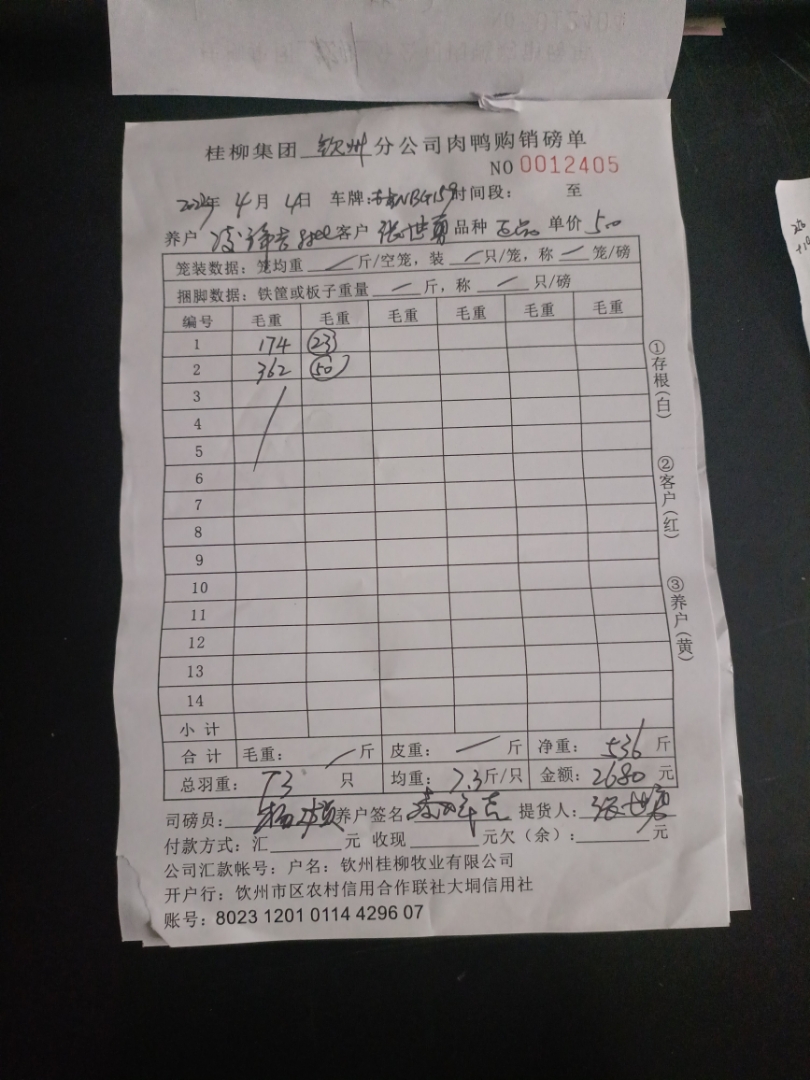 桂柳集团 钦州 分公司肉鸭购销磅单
NO 0012405
年 4月 4日 车牌: 时间段: 至
养户 客户 张世勇 品种 单价 5.00
笼装数据: 笼均重 斤/空笼, 装 只/笼, 称 笼/磅
捆脚数据: 铁筐或板子重量 一 斤, 称 一 只/磅
编号 毛重 毛重 毛重 毛重 毛重 毛重
1 174 23
2 362 50
3
4
5
6
7
8
9
10
11
12
13
14
小 计
合 计 毛重: 斤 皮重: 一 斤 净重: 536 斤
总羽重: 73 只 均重: 7.3斤/只 金额: 2680 元
司磅员: 养户签名 提货人: 张世勇
付款方式: 汇 元 收现 元欠(余): 元
公司汇款帐号: 户名: 钦州桂柳牧业有限公司
开户行: 钦州市区农村信用合作联社大垌信用社
账号: 8023 1201 0114 4296 07
①存根(白)
②客户(红)
③养户(黄)